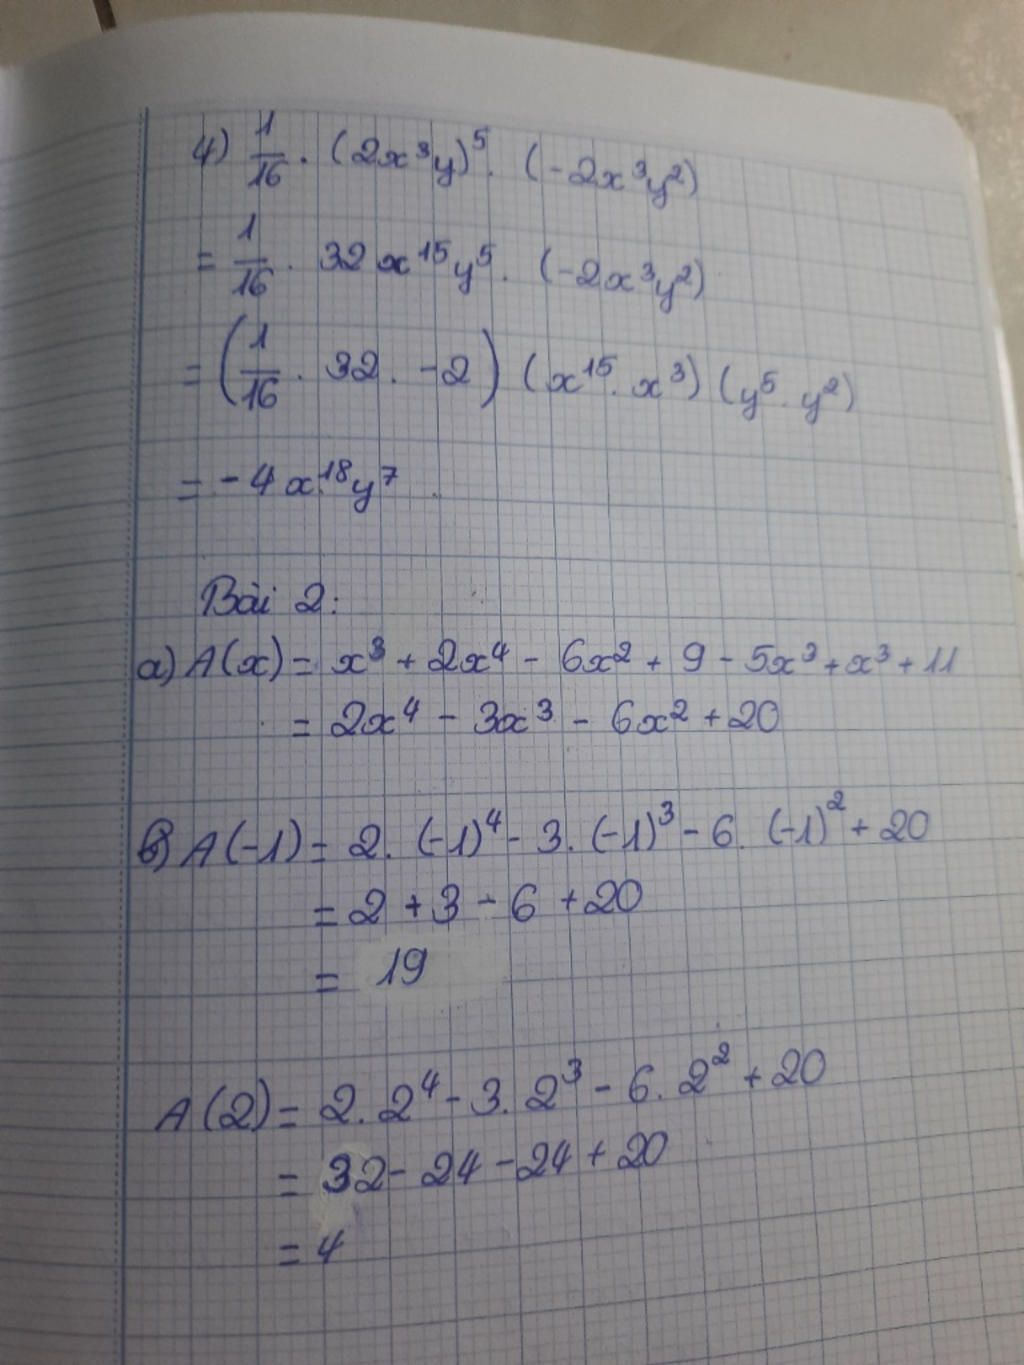 4) 1/16 . (2x³y)⁵ . (-2x³y²)
= 1/16 . 32x¹⁵y⁵ . (-2x³y²)
= (1/16 . 32 . -2) (x¹⁵ . x³) (y⁵ . y²)
= -4x¹⁸y⁷
Bài 2:
a) A(x) = x³ + 2x⁴ - 6x² + 9 - 5x³ + x³ + 11
= 2x⁴ - 3x³ - 6x² + 20
b) A(-1) = 2. (-1)⁴ - 3. (-1)³ - 6. (-1)² + 20
= 2 + 3 - 6 + 20
= 19
A(2) = 2. 2⁴ - 3. 2³ - 6. 2² + 20
= 32 - 24 - 24 + 20
= 4